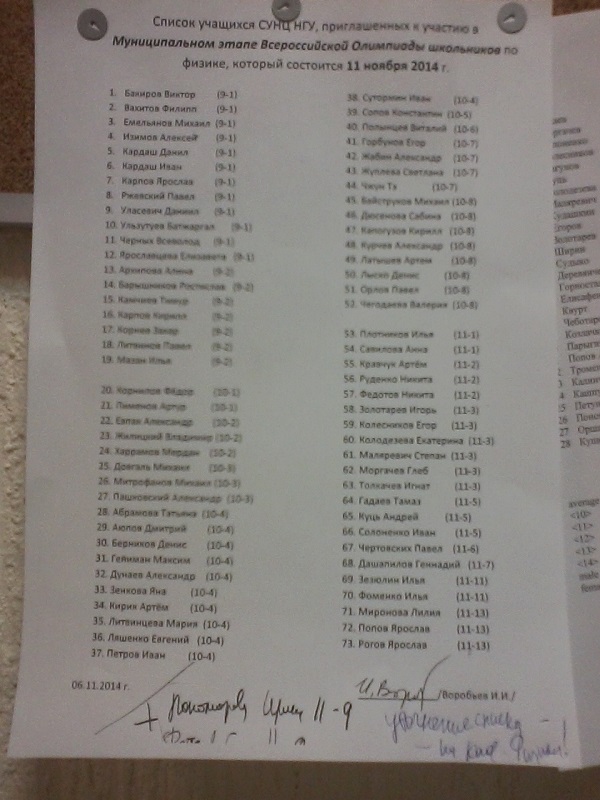 Список учащихся СУНЦ НГУ, приглашенных к участию в
Муниципальном этапе Всероссийской Олимпиады школьников по
физике, который состоится 11 ноября 2014 г.
1. Бакиров Виктор (9-1)
2. Вахитов Филипп (9-1)
3. Емельянов Михаил (9-1)
4. Изимов Алексей (9-1)
5. Кардаш Данил (9-1)
6. Кардаш Иван (9-1)
7. Карпов Ярослав (9-1)
8. Ржевский Павел (9-1)
9. Уласевич Даниил (9-1)
10. Ульзутуев Батжаргал (9-1)
11. Черных Всеволод (9-1)
12. Ярославцева Елизавета (9-1)
13. Архипова Алина (9-2)
14. Барышников Ростислав (9-2)
15. Камчиев Тимур (9-2)
16. Карпов Кирилл (9-2)
17. Корнев Захар (9-2)
18. Литвинов Павел (9-2)
19. Мазан Илья (9-2)
20. Корнилов Фёдор (10-1)
21. Пименов Артур (10-1)
22. Евпак Александр (10-2)
23. Жилицкий Владимир (10-2)
24. Харрамов Мердан (10-2)
25. Довгаль Михаил (10-3)
26. Митрофанов Михаил (10-3)
27. Пашковский Александр (10-3)
28. Абрамова Татьяна (10-4)
29. Аюпов Дмитрий (10-4)
30. Берников Денис (10-4)
31. Гейиман Максим (10-4)
32. Дунаев Александр (10-4)
33. Зенкова Яна (10-4)
34. Кирик Артём (10-4)
35. Литвинцева Мария (10-4)
36. Ляшенко Евгений (10-4)
37. Петров Иван (10-4)
38. Сутормин Иван (10-4)
39. Сопов Константин (10-5)
40. Полынцев Виталий (10-6)
41. Горбунов Егор (10-7)
42. Жабин Александр (10-7)
43. Жуплева Светлана (10-7)
44. Чжун Тэ (10-7)
45. Байструков Михаил (10-8)
46. Дюсенова Сабина (10-8)
47. Капогузов Кирилл (10-8)
48. Курчев Александр (10-8)
49. Латышев Артем (10-8)
50. Лыско Денис (10-8)
51. Орлов Павел (10-8)
52. Чегодаева Валерия (10-8)
53. Плотников Илья (11-1)
54. Савилова Анна (11-1)
55. Кравчук Артём (11-2)
56. Руденко Никита (11-2)
57. Федотов Никита (11-2)
58. Золотарев Игорь (11-3)
59. Колесников Егор (11-3)
60. Колодезева Екатерина (11-3)
61. Маляревич Степан (11-3)
62. Моргачев Глеб (11-3)
63. Толкачев Игнат (11-3)
64. Гадаев Тамаз (11-5)
65. Куць Андрей (11-5)
66. Солоненко Иван (11-5)
67. Чертовских Павел (11-6)
68. Дашапилов Геннадий (11-7)
69. Зезюлин Илья (11-11)
70. Фоменко Илья (11-11)
71. Миронова Лилия (11-13)
72. Попов Ярослав (11-13)
73. Рогов Ярослав (11-13)
06.11.2014 г.
/Воробьев И.И./
+ 11-9
уточнение списка -
- на каф. Физики!
Егоров
Золотарев
Ширин
average
<10>
<11>
<12>
<13>
<14>
male